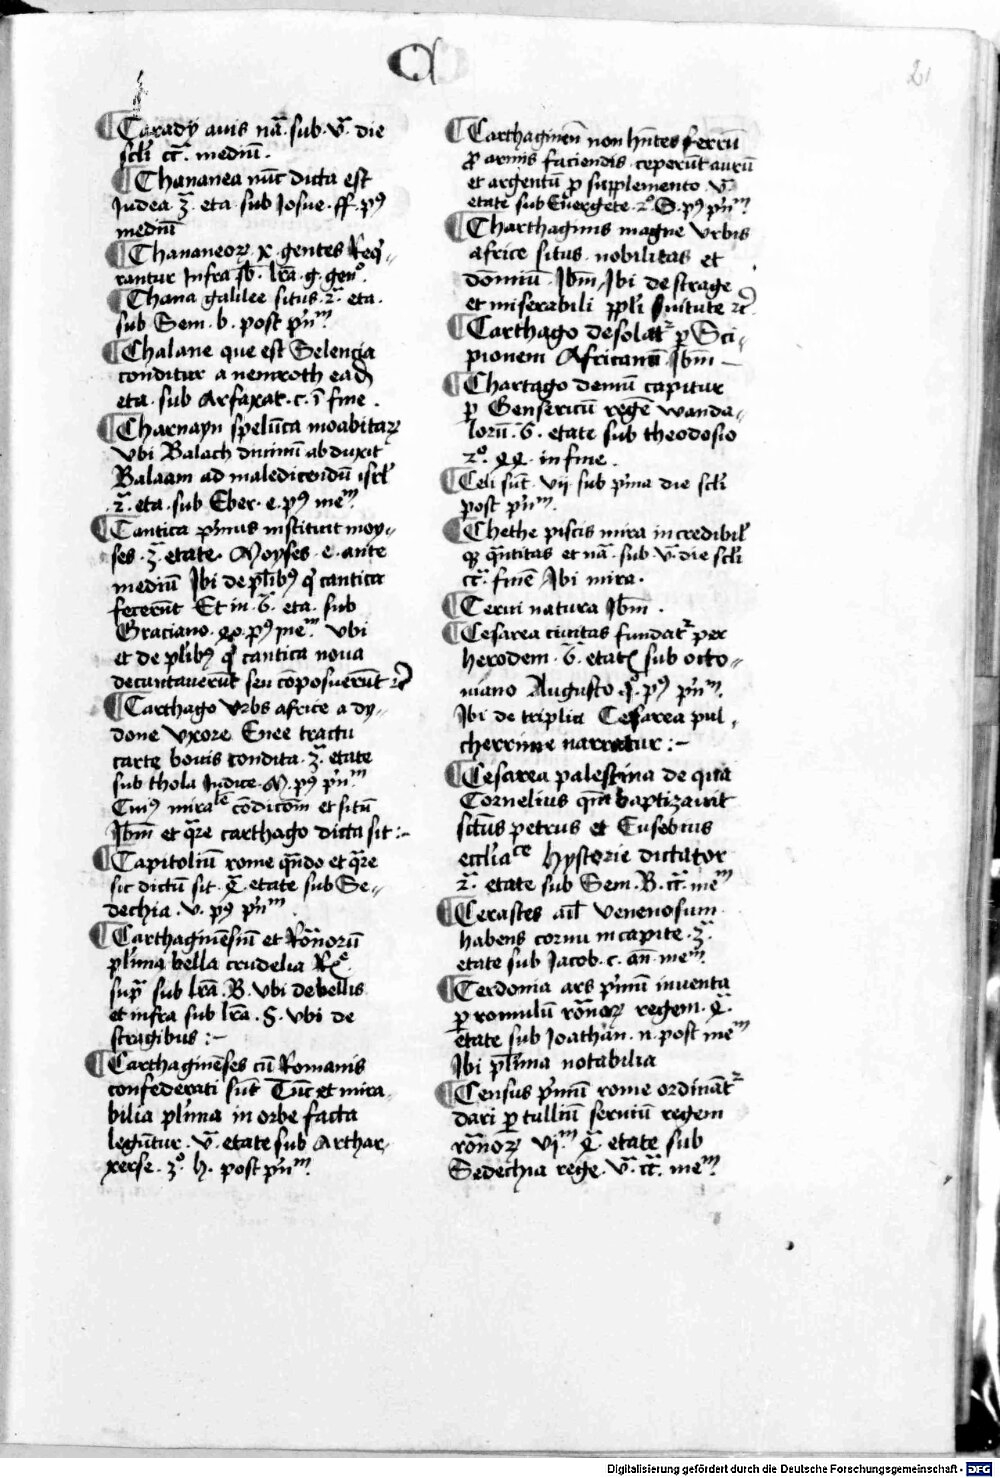 C
21
Carady avis na͞. sub. v͞. die
scl̄i cc͞. mediū.
Chananea nūc dicta est
Iudea. 3͞. eta. sub Iosue. ff. pꝰ
mediū
Chananeoꝝ x. gentes Req̄ =
rantur Infra sb̄. lr̄a. g. gen⁹.
Chana galilee situs. 2͞. eta.
sub Sem. b. post pn̄ᵐ.
Chalane que est Selencia
conditur a nemroth ead̄
eta. sub Arfaxat. c. ī fine.
Charnayn spelūca moabitaꝝ
Vbi Balach diuinū abduxit
Balaam ad maledicendū isrl̄
.2͞. eta. sub Eber. e. pꝰ meᵐ.
Cantica p̄mus instituit moy =
ses. 3͞. etate. Moyses. e. ante
mediū Ibi de pl̄ibꝰ q̄ cantica
fecerūt Et in. 6͞. eta. sub
Graciano. pꝰ meᵐ. vbi
et de pl̄ibꝰ q̄ cantica noua
decantauerūt seu cōposuerūt ⁊c̄
Carthago vrbs africe a dy =
done vxore Enee tractu
carte bouis condita. 3͞. etate
sub thola Iudice. M. pꝰ pn̄ᵐ
Cuiꝰ miraᵇˡᵉ cōdicōm et sitū
Ib̄m et q̄re carthago dicta sit :-
Capitoliū rome qn̄do et q̄re
sic dictū sit. 4͞. etate sub Se =
dechia. v. pꝰ pn̄ᵐ.
Carthaginēsiū et Ro͞noruͫ
pl̄ima bella crudelia Rᵉ
sup̄ sub lr̄a. B. vbi de bellis
et infra sub lr̄a. S. vbi de
stragibus :-
Carthaginēses cū Romanis
confederati sūt Tūc et mira
bilia pl̄ima in orbe facta
legūtur. v͞. etate sub Arthar =
xerse. 3⁰. h. post pn̄ᵐ.
Carthaginen̄ non hn̄tes ferrū
ꝓ armis faciendis. ceperūt aurū
et argentū ꝓ supplemento. v͞.
etate sub Euergete. 2⁰. S. pꝰ pn̄ᵐ.
Charthaginis magne vrbis
africe situs. nobilitas et
dōmiū. Ib̄m, Ibi de strage
et miserabili pp̄li suitute ⁊c̄
Carthago desolatᷣ ꝑ Sci =
pionem Africanū Ib̄m —
Chartago demū capitur
ꝑ Gensericū regē wanda =
lorū. 6. etate sub theodosio
2⁰. QQ. in fine.
Celi sūt. vij. sub p̄ma die scl̄i
post pn̄ᵐ.
Chethe piscis mira incredibil̄
qꝫ qn̄titas et na͞. sub. v͞. die scl̄i
cc͞. finē, Ibi mira.
Cerui natura Ib̄m.
Cesarea ciuitas fundatᷣ per
herodem. 6͞. etate sub octo =
niano Augusto. pꝰ pn̄ᵐ.
Ibi de triplici Cesarea pul =
cherrime narratur :-
Cesarea palestina de qua
Cornelius quē baptizauit
sc̄tus petrus et Eusebius
eccl̄iaᶜᵉ hystorie dictator
2͞. etate sub Sem. B. cc͞. meᵐ
Cerastes aīl venenosum
habens cornu in capite. 3͞.
etate sub Iacob. c. an̄. meᵐ.
Cerdonia ars p̄mū inventa
ꝑ romulū ro͞noꝝ regem. 4͞.
etate sub Ioathan. n. post meᵐ
Ibi pl̄ima notabilia
Census p̄mū rome ordinātᷣ
dari ꝑ tulliū seruiū regem
ro͞noꝝ vjᵐ. 4͞. etate sub
Sedechia rege. v͞. cc͞. meᵐ.
Digitalisierung gefördert durch die Deutsche Forschungsgemeinschaft - DFG